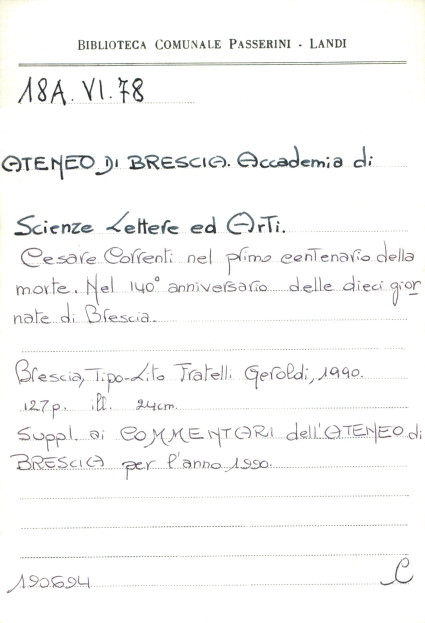 BIBLIOTECA COMUNALE PASSERINI - LANDI
18A. VI. 78
ATENEO DI BRESCIA. Accademia di
Scienze Lettere ed Arti.
Cesare Correnti nel primo centenario della
morte. Nel 140° anniversario delle dieci gior
nate di Brescia.
Brescia, Tipo-Lito Fratelli Geroldi, 1990.
127p. ill. 24cm.
Suppl. ai COMMENTARI dell'ATENEO di
BRESCIA per l'anno 1990.
190694
C